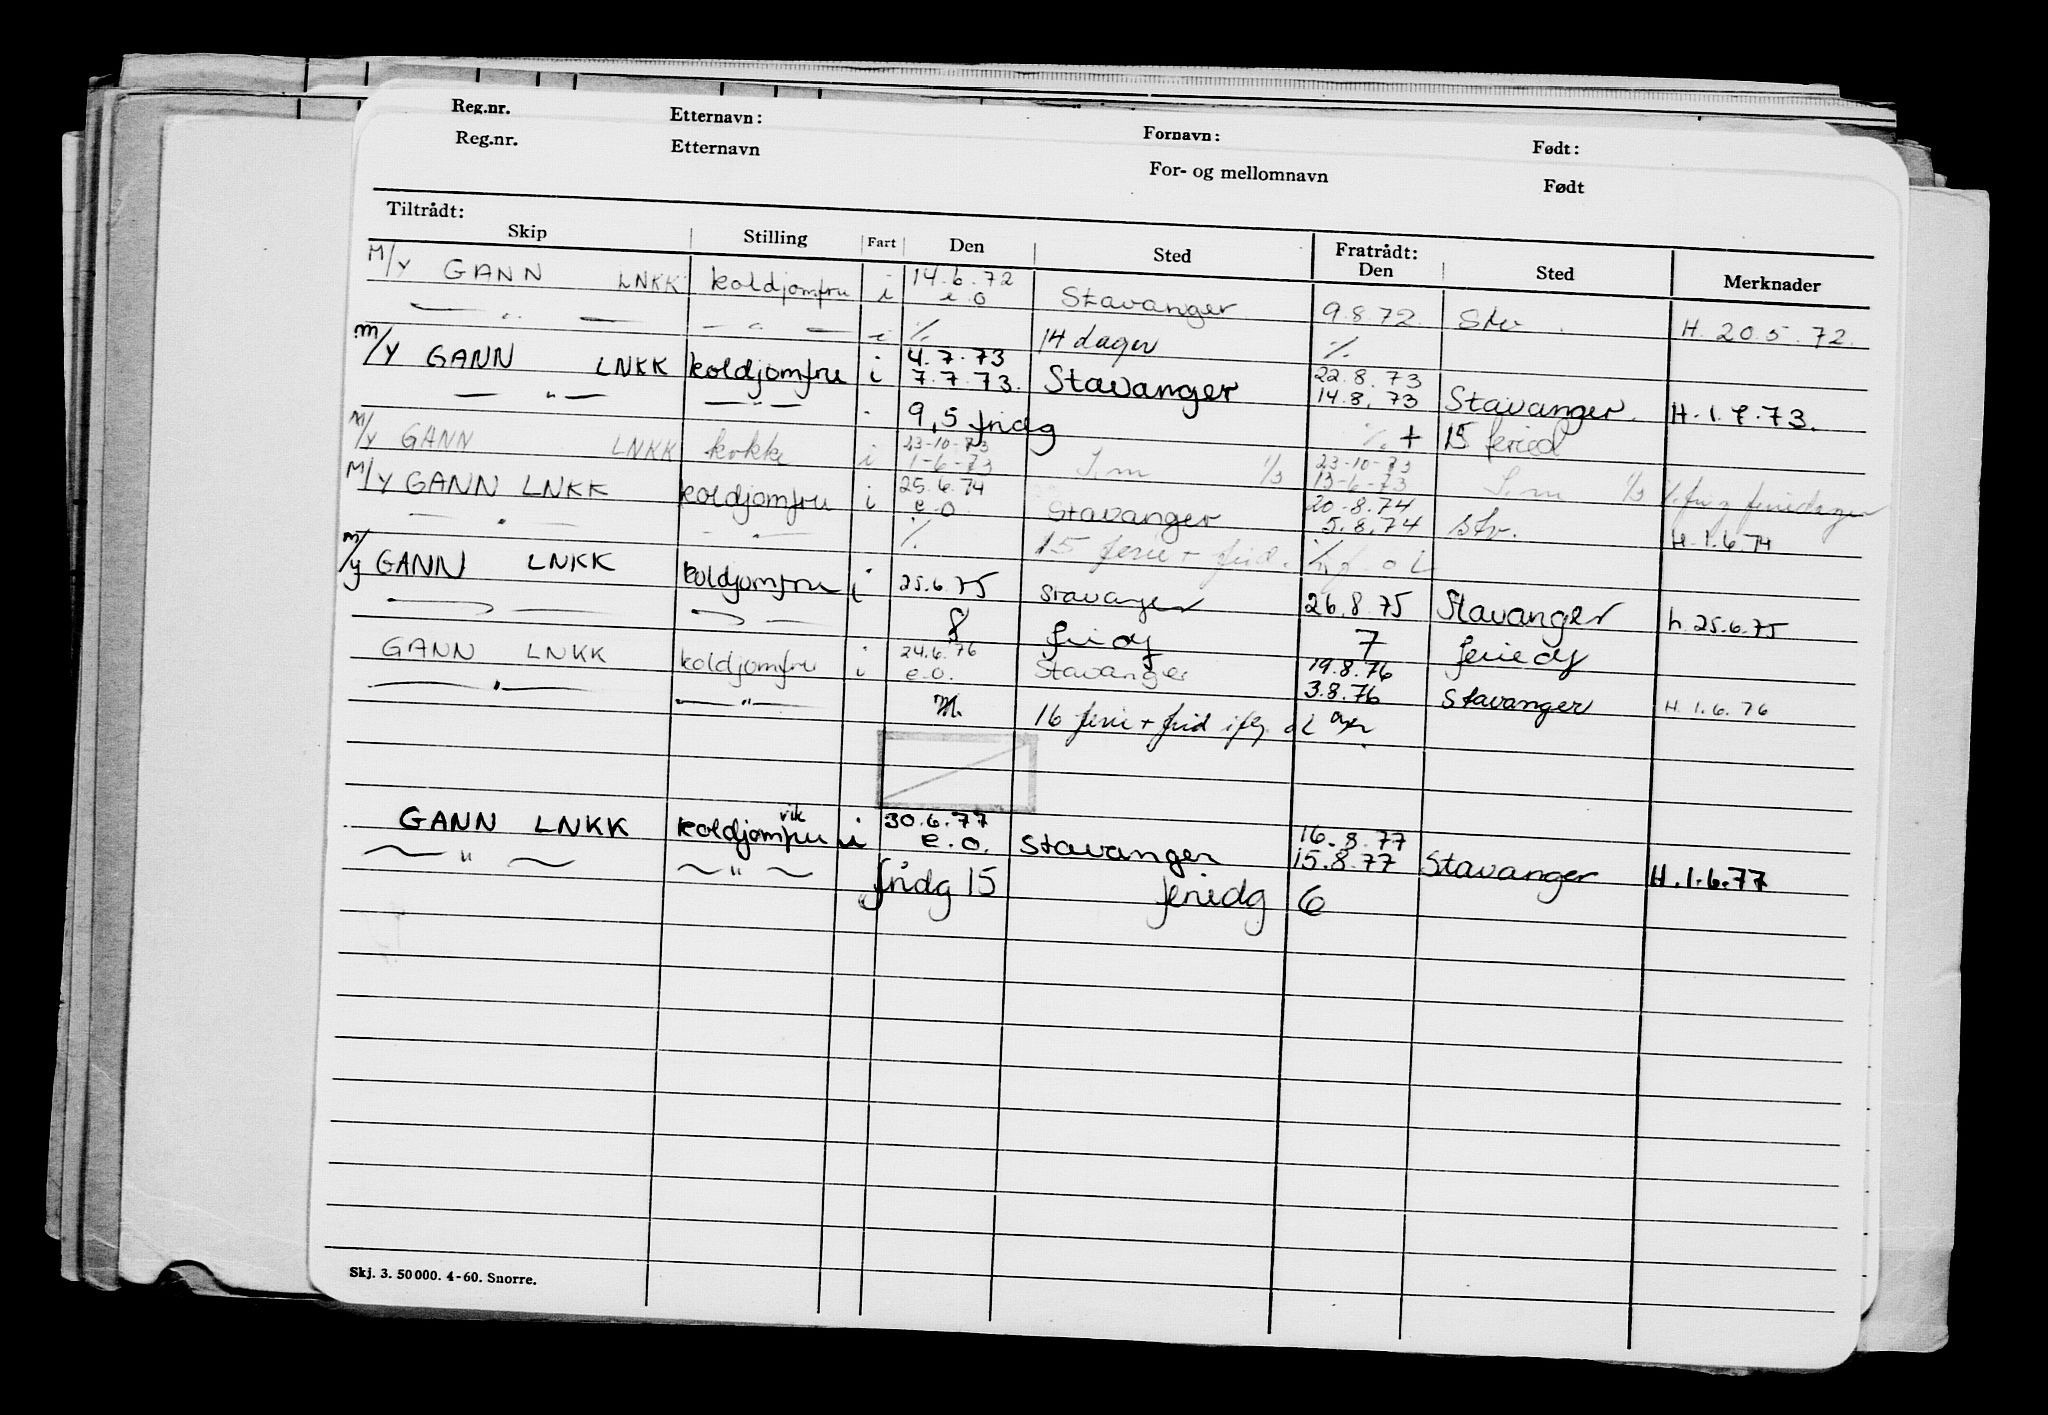 Reg.nr. Etternavn: Fornavn: Født:
Reg.nr. Etternavn For- og mellomnavn Født
Tiltrådt: Fratrådt:
Skip Stilling Fart Den Sted Den Sted Merknader
M/Y GANN LNKK koldjomfru i 14.6.72 Stavanger 9.8.72 Stv. H. 20.5.72.
— " — — " — i e.o
i % 14 dager %
m/Y GANN LNKK koldjomfru i 4.7.73 Stavanger 22.8.73 Stavanger. H. 1.7.73.
— " — — " — 7.7.73. 14.8.73
9,5 fridg % + 15 feried
M/Y GANN LNKK kokke i 23-10-73 S.m 1/3 23-10-73 S.m 1/3
1-6-73 13-6-73
M/Y GANN LNKK koldjomfru i 25.6.74 Stavanger 20.8.74 Stv. H. 1.6.74
— " — — " — e.o. 5.8.74
% 15 ferie + frid.
m/y GANN LNKK koldjomfru i 25.6.75 Stavanger 26.8.75 Stavanger h. 25.6.75
8 fridg 7 feriedg
GANN LNKK koldjomfru i 24.6.76 Stavanger 19.8.76 Stavanger H. 1.6.76
— " — — " — e.o. 3.8.76
16 ferie + frid
GANN LNKK koldjomfru vik i 30.6.77 Stavanger 16.8.77 Stavanger H. 1.6.77
— " — — " — e.o. 15.8.77
fridg 15 feriedg 6
Skj. 3. 50 000. 4-60. Snorre.